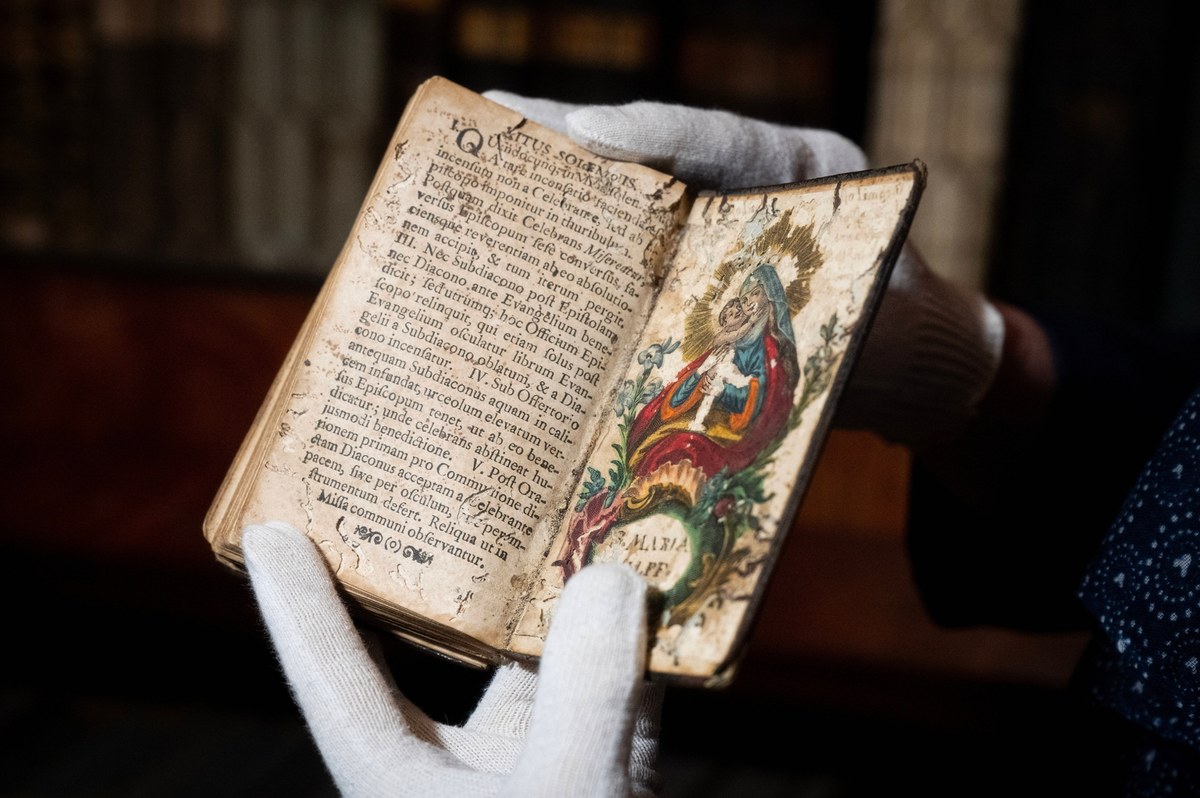 RITUS SOLEMNIS.
I. QUandocunq; in Missa solen.
A fit incensatio, facienda
incensum non a Celebrante, sed ab
piscopo imponitur in thuribulum.
Postquam dixit Celebrans Misereatur
versus Episcopum sese conversus, fa-
ciensque reverentiam ab eo absolutio-
nem accipit, & tum iterum pergit.
III. Nec Subdiacono post Epistolam
nec Diacono ante Evangelium bene-
dicit; sed utrumq; hoc Officium Epi-
scopo relinquit, qui etiam solus post
Evangelium osculatur librum Evan-
gelii a Subdiacono oblatum, & a Dia-
cono incensatur. IV. Sub Offertorio
antequam Subdiaconus aquam in cali-
cem infundat, urceolum elevatum ver-
sus Episcopum tenet, ut ab eo bene-
dicatur; unde celebrans abstineat hu-
jusmodi benedictione. V. Post Ora-
tionem primam pro Communione di-
ctam Diaconus acceptam a Celebrante
pacem, sive per osculum, sive per in-
strumentum defert. Reliqua ut in
Missa communi observantur.
S. MARIA